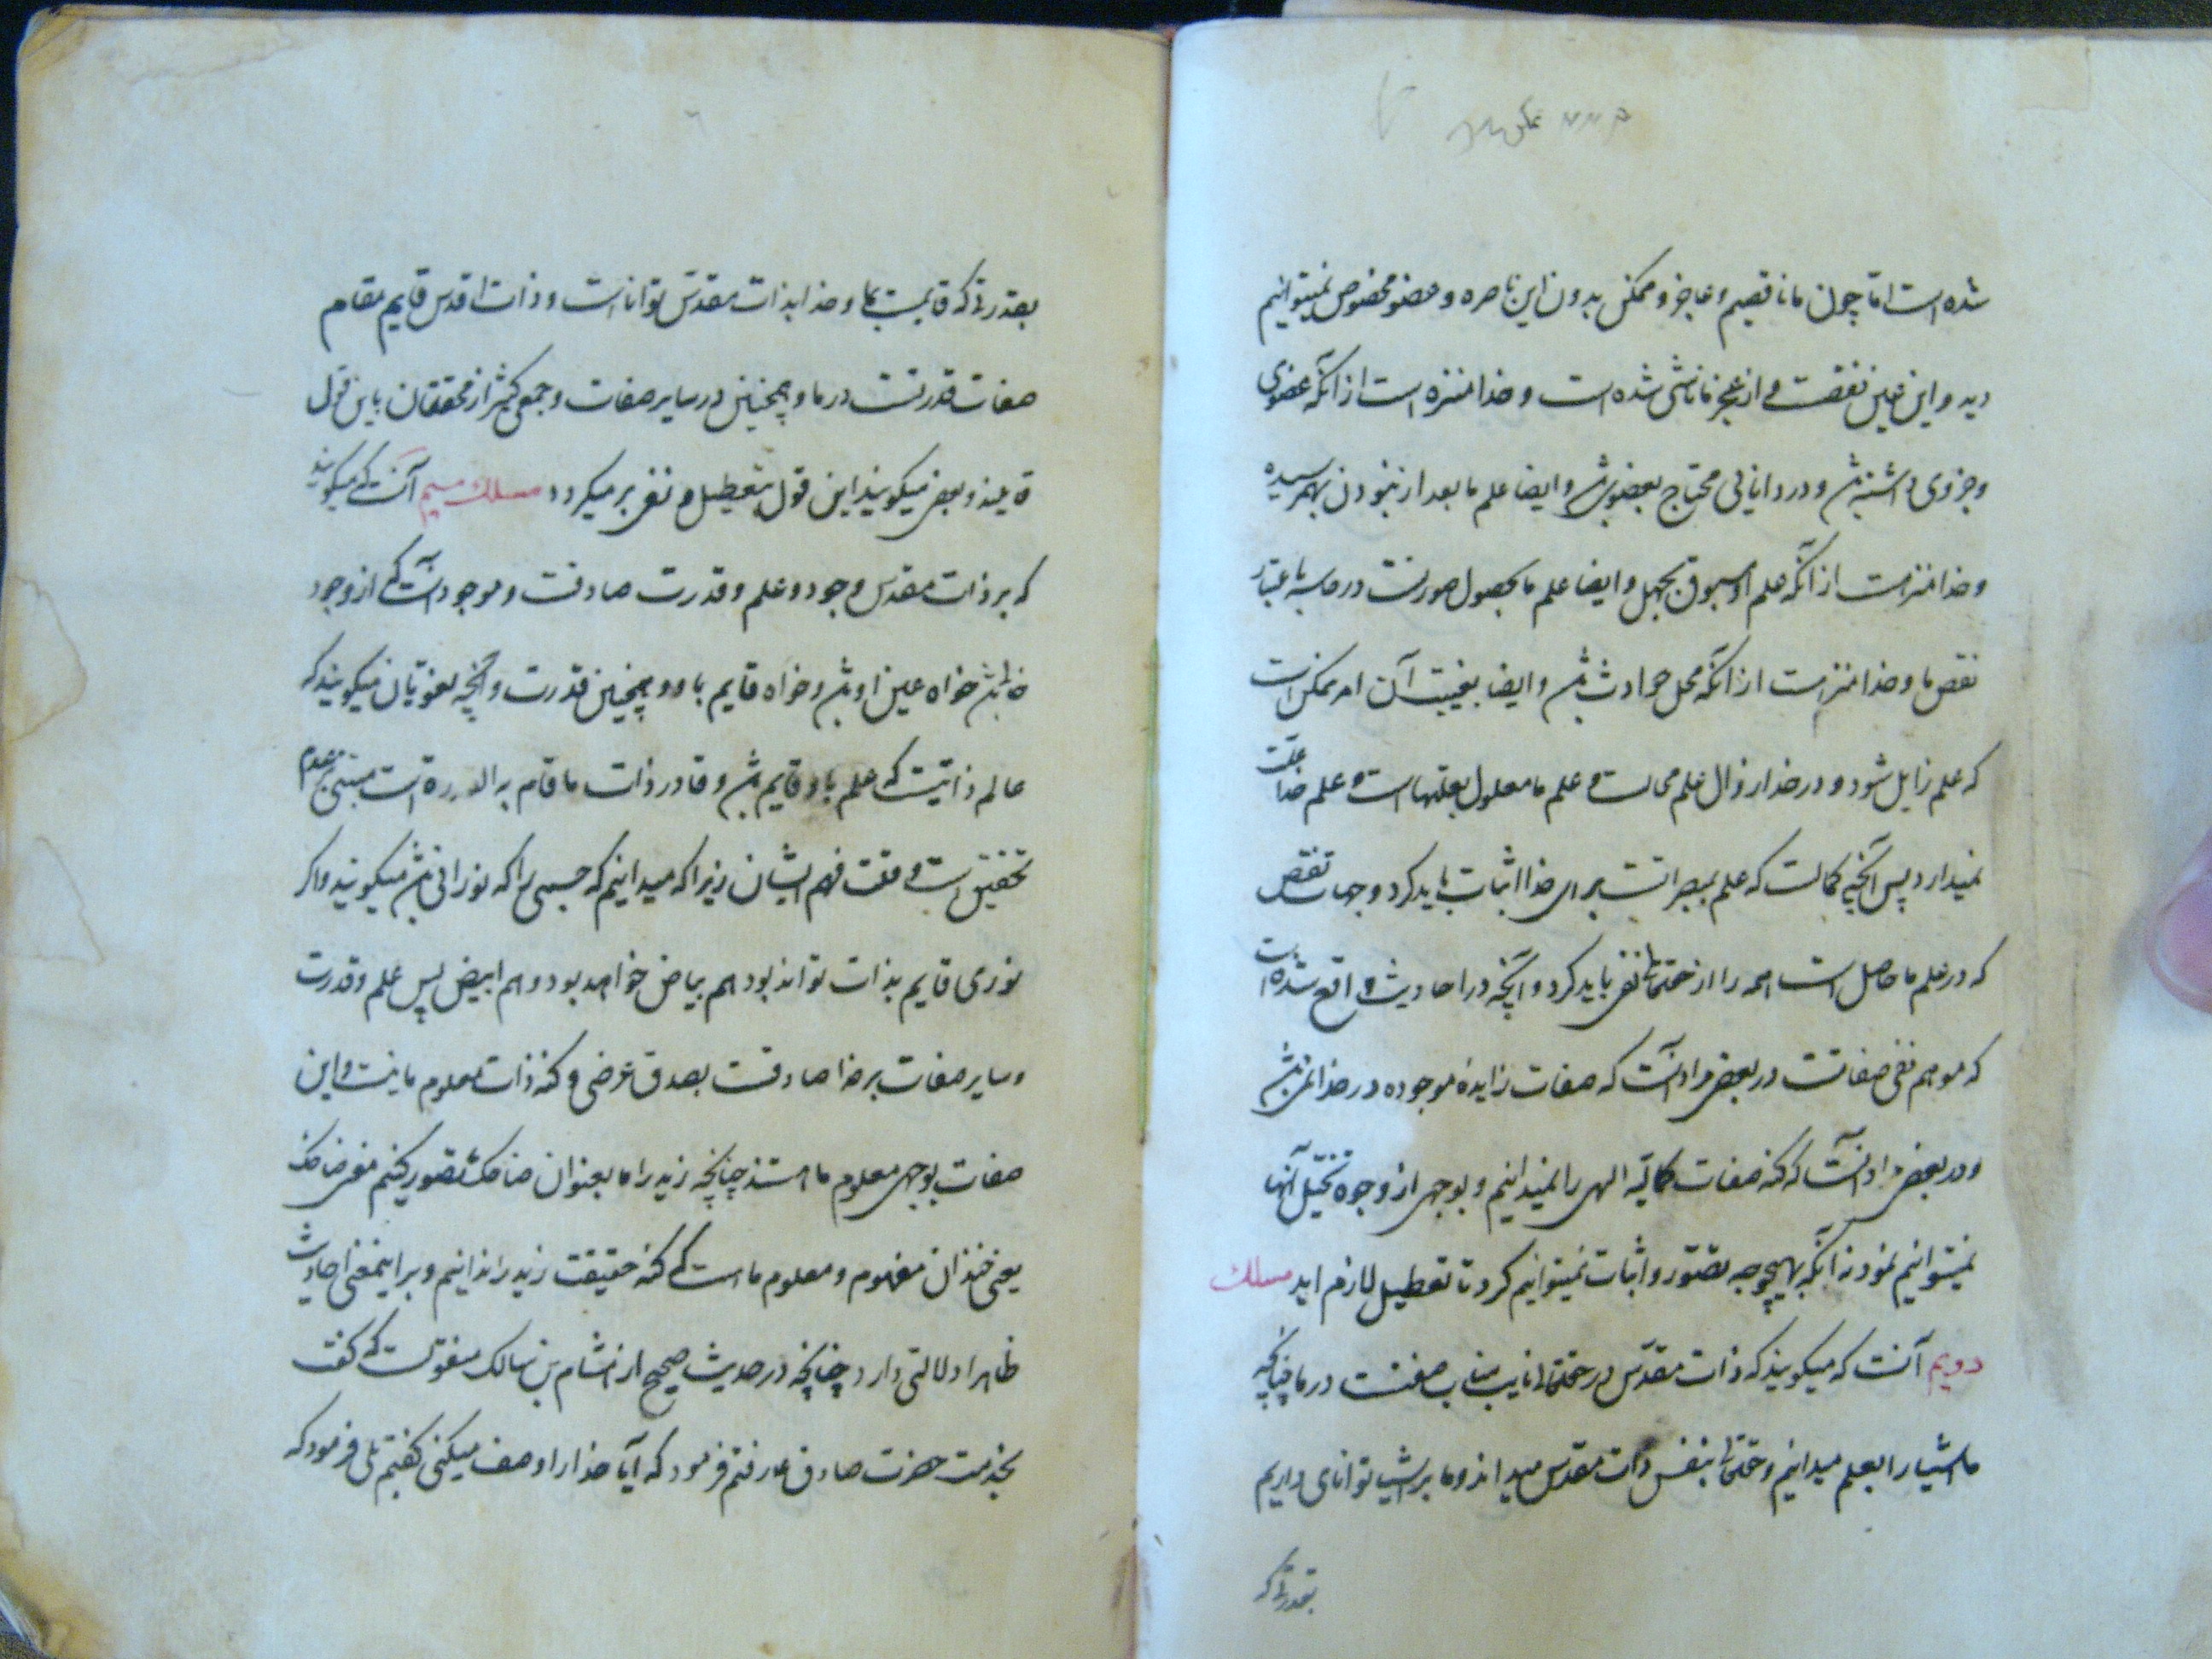 شده است اما چون ما ناقصیم و عاجز و ممکن بدون این باصره و عضو مخصوص نمیتوانیم
دید و این نقصت و از عجز ما ناشی شده است و خدا منزه است از آنکه عضوی
و جزوی داشته باشد و در دانائی محتاج بعضوی باشد و ایضا علم ما بعد از نبودن بهمرسیده
و خدا منزه است از آنکه علم او مسبوق بجهل و ایضا علم ما بحصول صورتست در ما باعتبار
نقص ما و خدا منزه است از آنکه محل حوادث باشد و ایضا بغیبت آن امر ممکن است
که علم زایل شود و در خدا زوال علم محالست و علم ما معلول بعلتهاست و علم خدا علت
نمیدارد پس آنچه کمالست که علم بمبصراتست برای خدا اثبات باید کرد و جهات نقص
که در علم ما حاصل است همه را از حقتعالی نفی باید کرد و آنچه در احادیث واقع شده است
که موهم نفی صفاتست در بعضی مراد آنست که صفات زایدهٔ موجوده در خدا نمیباشد
و در بعضی مراد آنست که کنه صفات کمالیه الهی را نمیدانیم و بوجهی از وجوه تخیل آنها
نمیتوانیم نمود نه آنکه بهیچوجه تصور و اثبات نمیتوانیم کرد تا تعطیل لازم آید مسلک
دویم آنست که میگویند که ذات مقدس در حقتعالی نایب مناب صفتست در ما چنانچه
ما اشیا را بعلم میدانیم و حقتعالی بنفس ذات مقدس میداند و ما بر اشیا توانای داریم
بقدرتی که
بقدرتی که قایمست بما و خدا بذات مقدس تواناست و ذات اقدس قایم مقام
صفات قدرتست در ما و همچنین در سایر صفات و جمعی کثیر از محققان باین قول
قایلند و بعضی میگویند این قول بتعطیل و نفی بر میگردد مسلک سیم آنست که میگویند
که بر ذات مقدس وجود و علم و قدرت صادقست و موجود آنست که از وجود
خواه عین او باشد و خواه قایم باو و همچنین قدرت و آنچه لغویان میگویند که
عالم ذاتیست که علم باو قایم باشد و قادر ذات ما قام به القدرة است مبتنی بر عدم
تحقیق است و قلت فهم ایشان زیرا که میدانیم که جسمی را که نورانی باشد میگویند و اگر
نوری قایم بذات تواند بود هم بیاض خواهد بود و هم ابیض پس علم و قدرت
و سایر صفات بر خدا صادقست بصدق عرضی و کنه ذات معلوم ما نیست و این
صفات بوجهی معلوم ما هستند چنانچه زید را ما بعنوان ضاحک تصور کنیم معنی ضاحک
یعنی خندان مفهوم و معلوم ما است که کنه حقیقت زید را ندانیم و بر اینمعنی احادیث
ظاهرا دلالتی دارد چنانچه در حدیث صحیح از هشام بن سالک منقولست که گفت
بخدمت حضرت صادق ع رفتم فرمود که آیا خدا را وصف میکنی گفتم بلی فرمود که